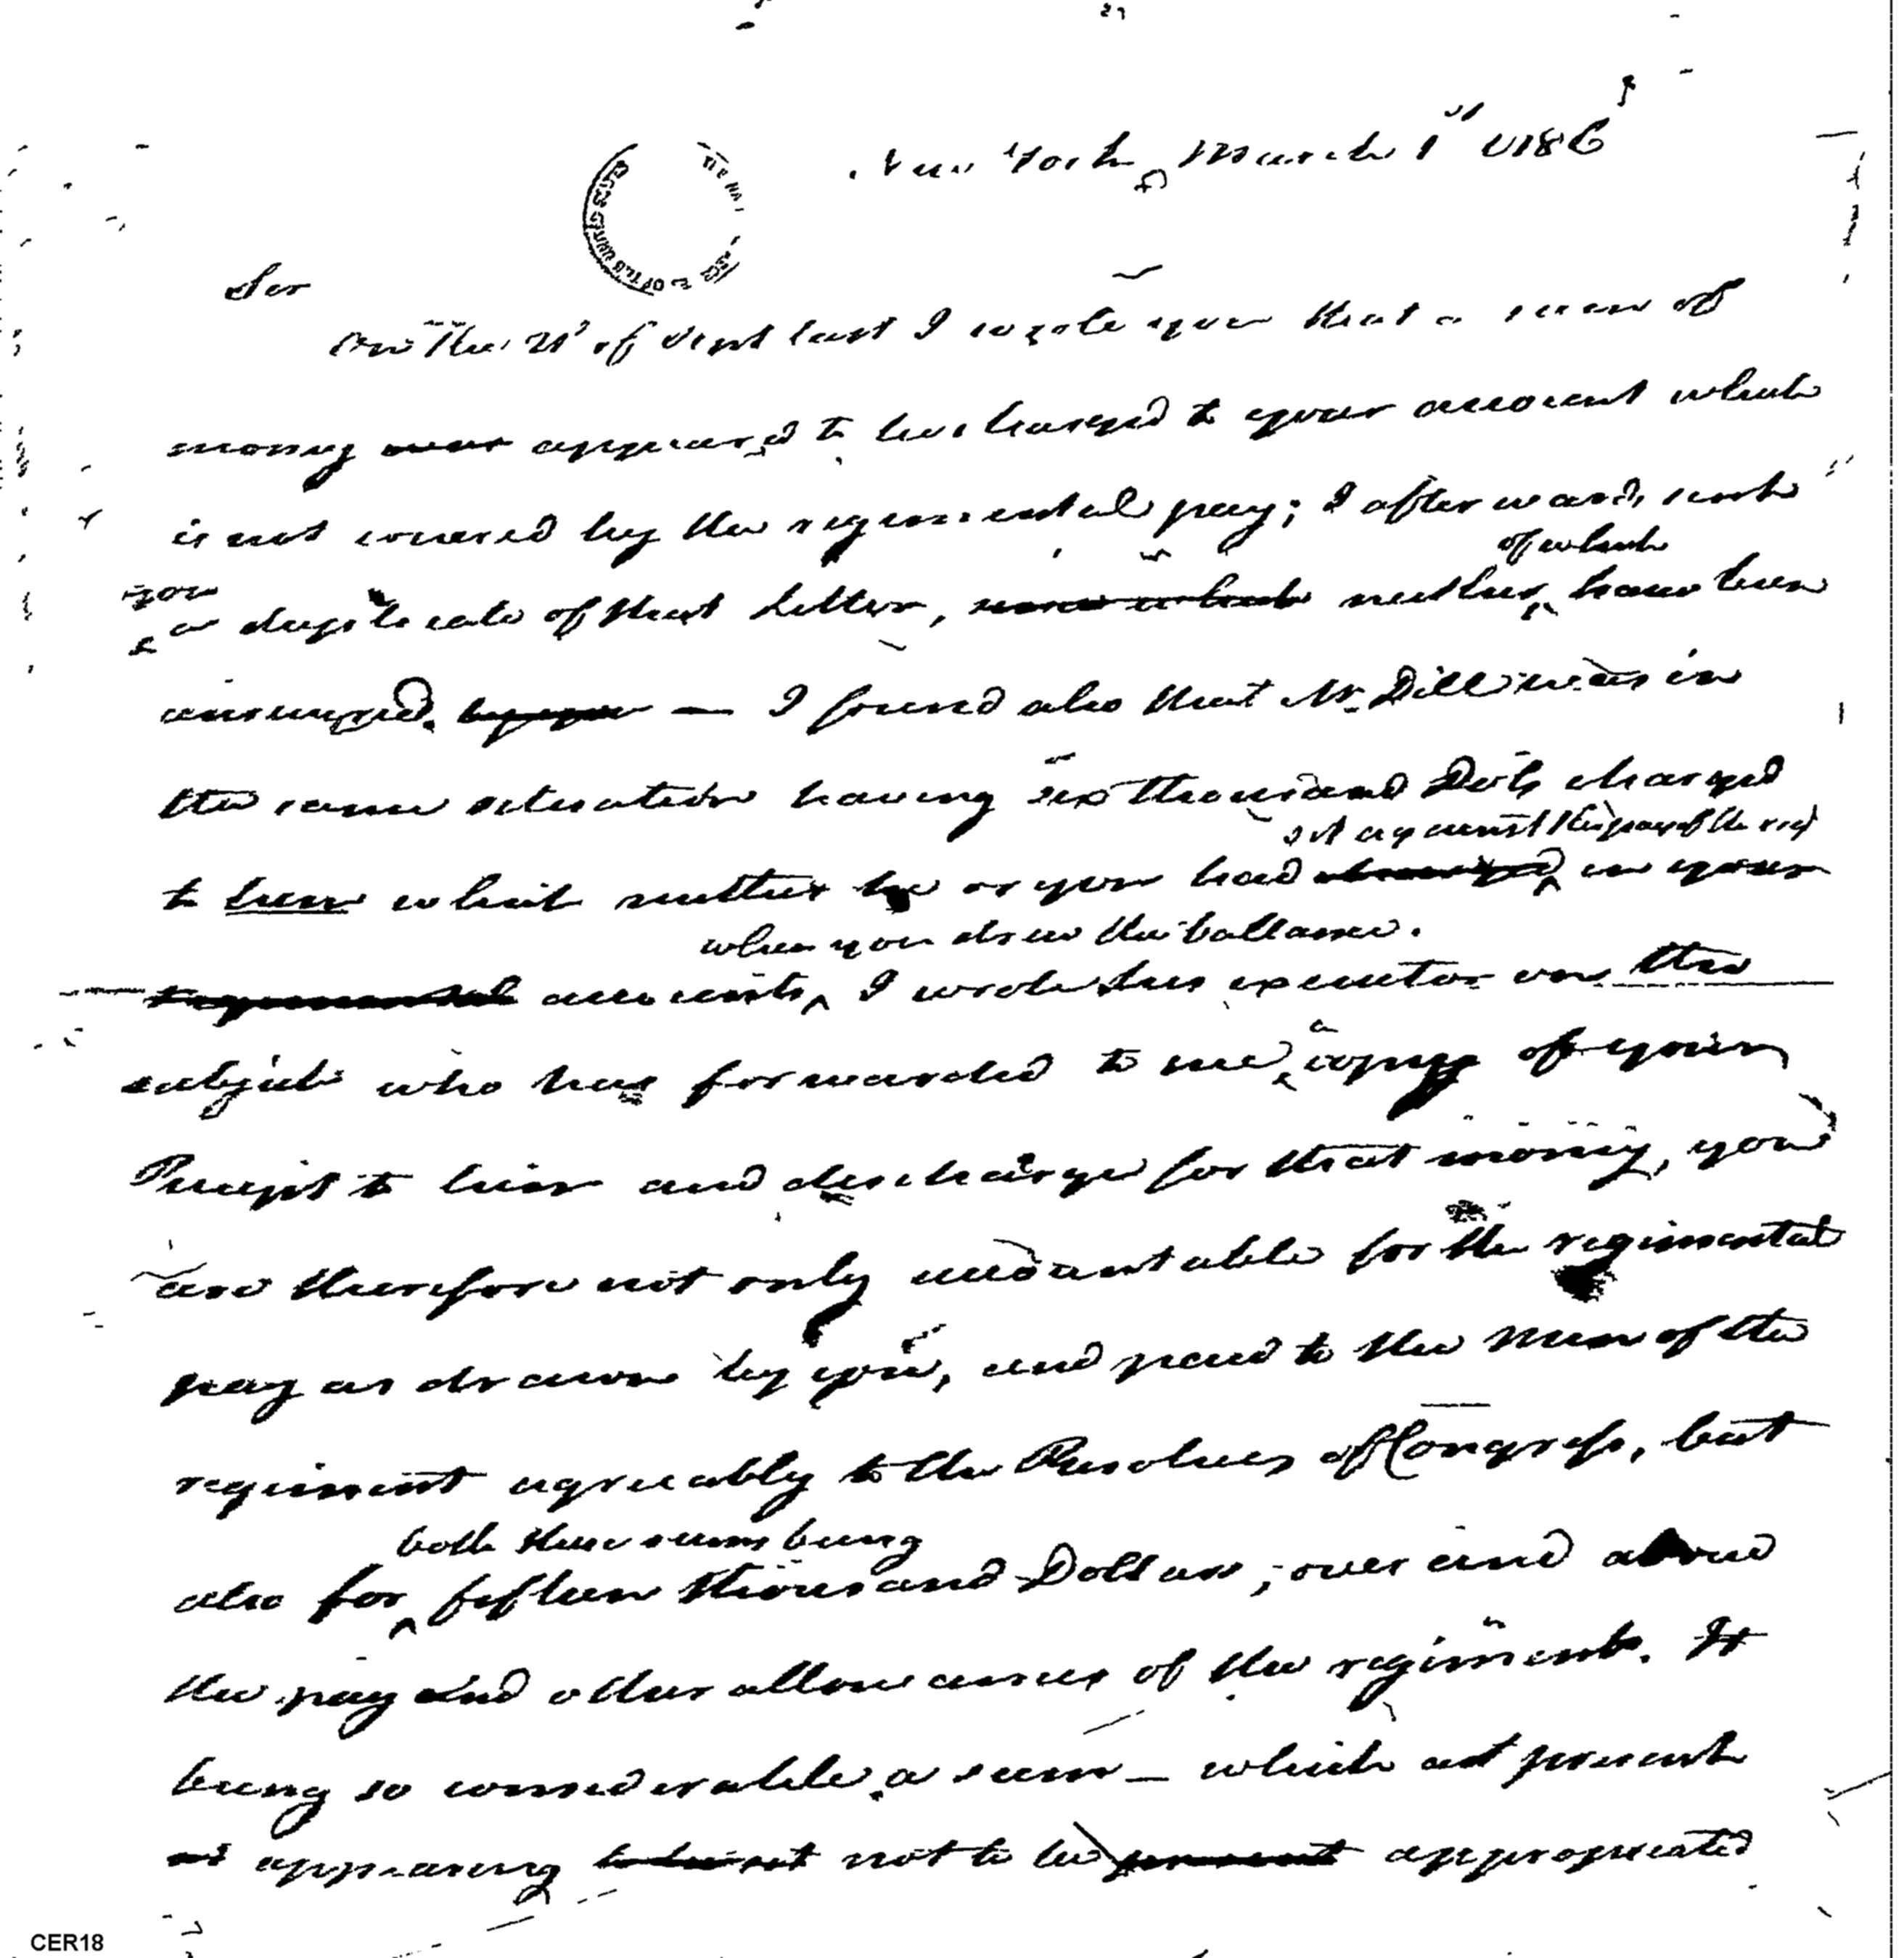 New York March 1st 1786
Sir
On the 21st of Sept last I wrote you that a sum of
money appeared to be charged to your account which
is not covered by the regimental pay; I afterwards sent
of which
you
a duplicate of that Letter, neither have been
answered. — I found also that Mr. Dill was in
the same situation having six thousand Dols charged
set against the pay of the regt
to him which neither he or you had in your
when you drew the ballance.
accounts, I wrote his executor on the
subject who has forwarded to me a copy of your
Receipt to him and discharge for that money, you
are therefore not only accountable for the regimental
pay as drawn by you, and paid to the men of the
regiment agreeably to the Resolves of Congress, but
both these sums being
also for fifteen thousand Dollars, over and above
the pay and other allowances of the regiment. It
being so considerable a sum — which at present
appearing not to be appropriated
CER18